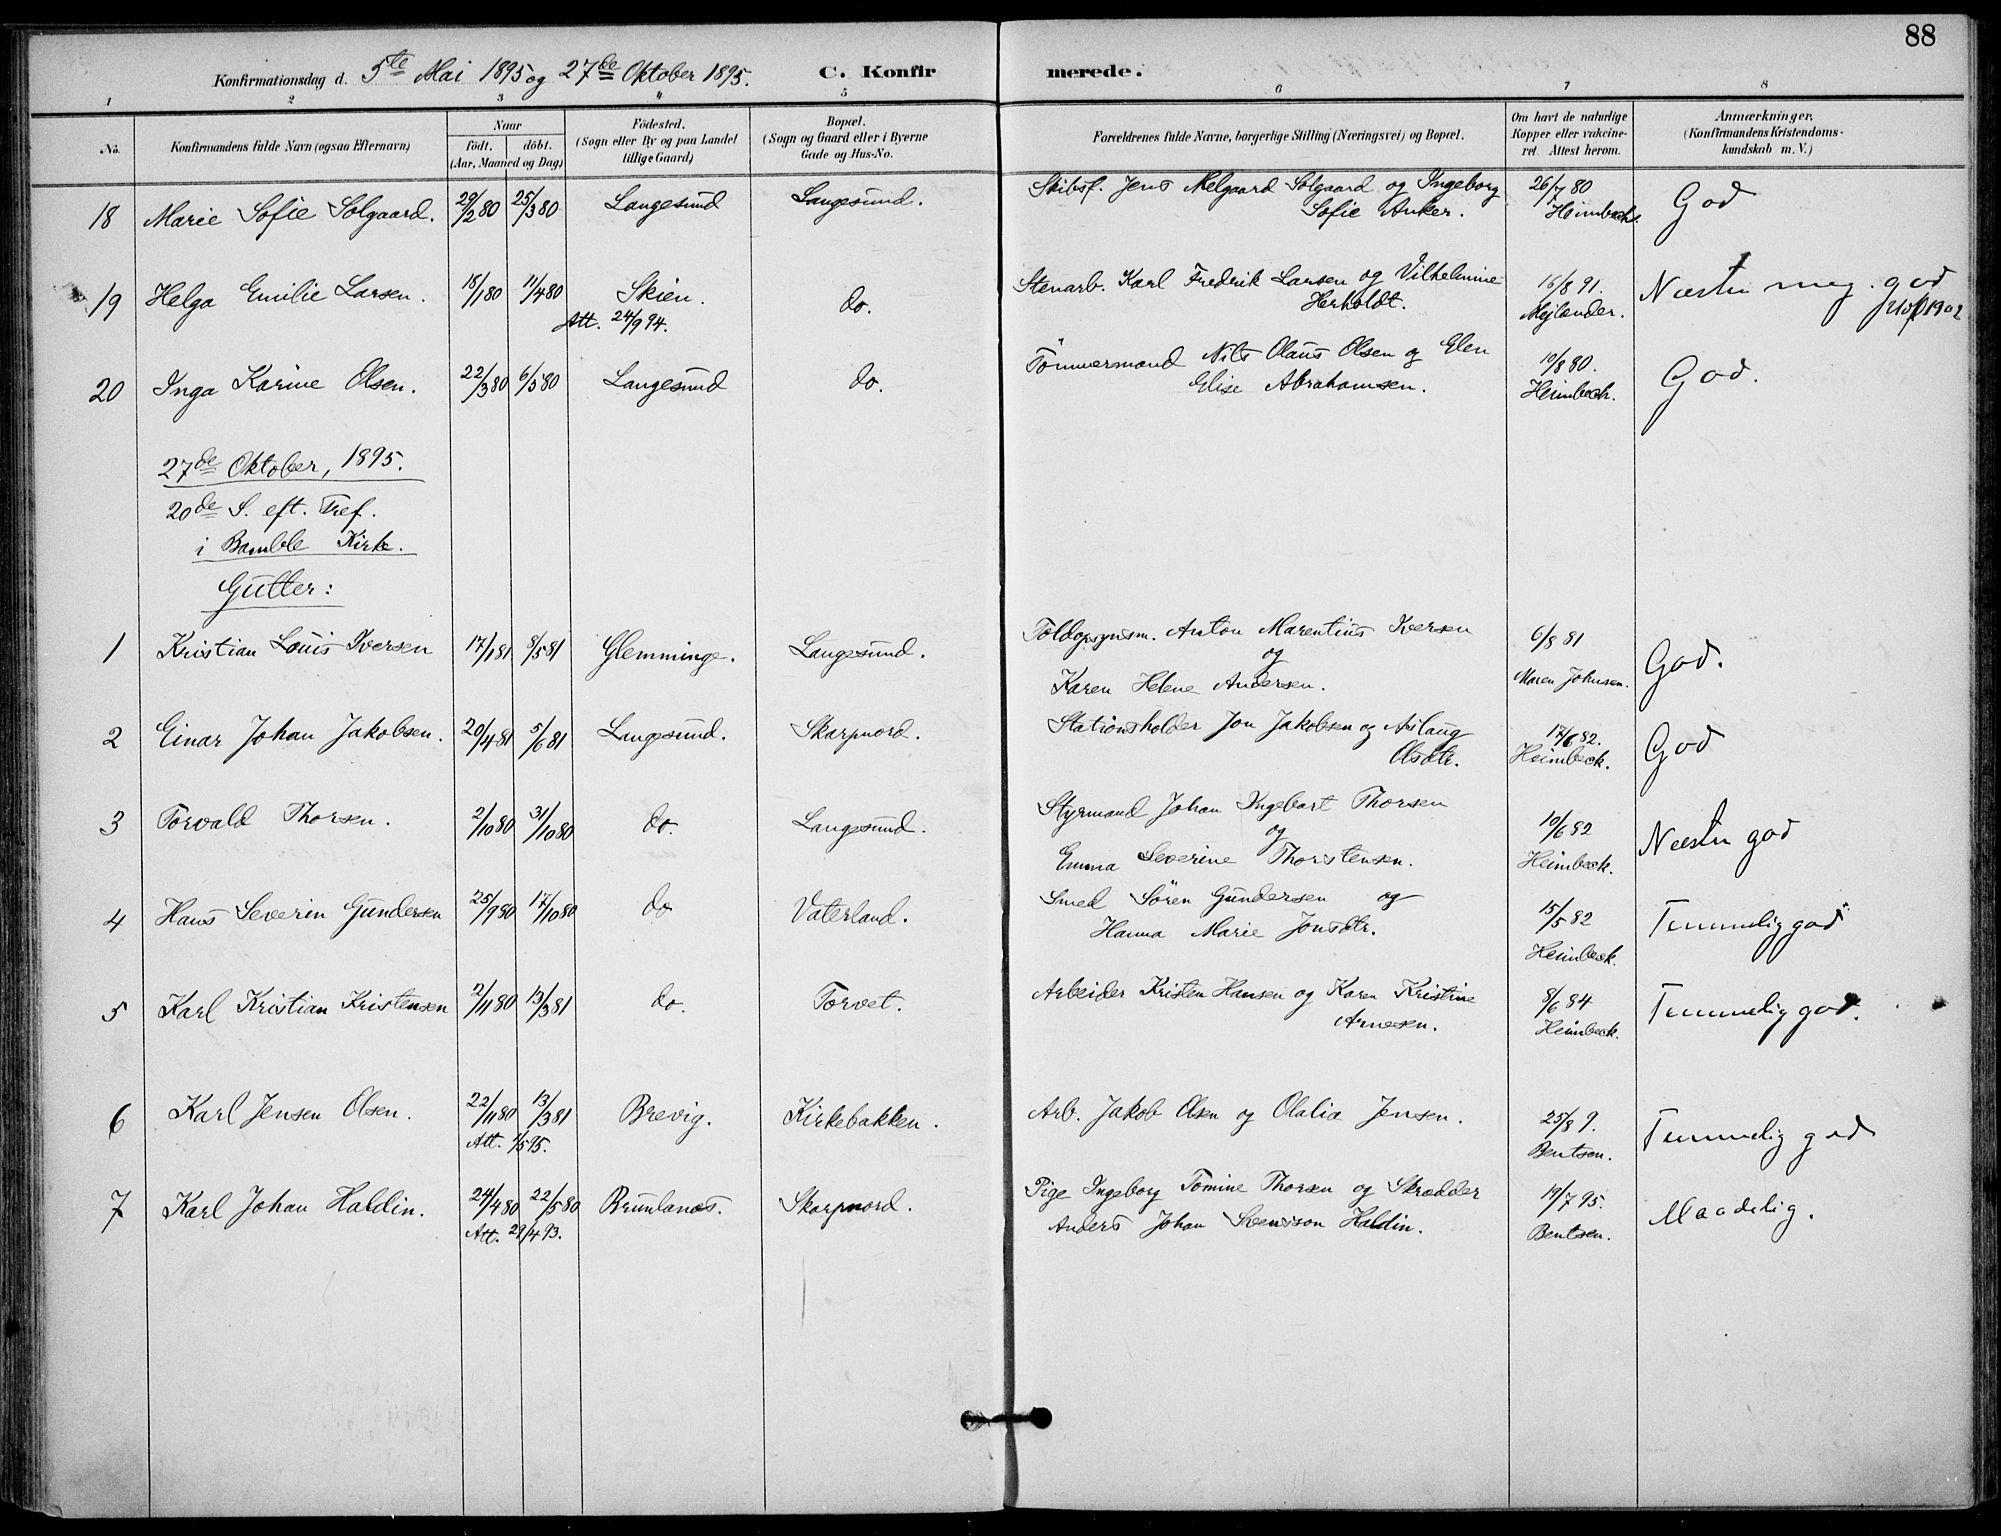 88
Konfirmationsdag d. 5te Mai 1895 og 27de Oktober 1895. C. Konfirmerede.
1 2 3 4 5 6 7 8
No. Konfirmandens fulde Navn (ogsaa Efternavn) Naar født. døbt. (Aar, Maaned og Dag) Fødested. (Sogn eller By og paa Landet tillige Gaard) Bopæl. (Sogn og Gaard eller i Byerne Gade og Hus-No. Forældrenes fulde Navne, borgerlige Stilling (Næringsvei) og Bopæl. Om havt de naturlige Kopper eller vakcineret. Attest herom. Anmærkninger. (Konfirmandens Kristendomskundskab m. V.)
18 Marie Sofie Solgaard. 29/2 80 25/3 80 Langesund Langesund. Skibsf. Jens Melgaard Solgaard og Ingeborg 26/7 80 God
Sofie Anker. Heimbeck.
19 Helga Emilie Larsen. 18/1 80 11/4 80 Skien. do. Stenarb. Karl Fredrik Larsen og Vilhelmine 16/8 91. Næsten meg. god
Att. 24/9 94. Herholdt. Mejlænder. 1902
20 Inga Karine Olsen. 22/3 80 6/5 80 Langesund do. Tømmermand Nils Olaus Olsen og Elen 10/8 80. God.
Elise Abrahamsen. Heimbeck.
27de Oktober, 1895.
20de S. eft. Tref.
i Bamble Kirke.
Gutter:
1 Kristian Louis Iversen 17/1 81 8/5 81 Glemminge. Langesund. Toldopsynsm. Anton Marentius Iversen 6/8 81 God.
og
Karen Helene Andersen. Maren Johnsen.
2 Einar Johan Jakobsen. 20/4 81 5/6 81 Langesund. Skarpnord. Stationsholder Jon Jakobsen og Aslaug 17/6 82. God
Olsdtr. Heimbeck.
3 Torvald Thorsen. 2/10 80 31/10 80 do. Langesund. Styrmand Johan Ingebart Thorsen 10/6 82 Næsten god
og
Emma Severine Thorstensen. Heimbeck.
4 Hans Severin Gundersen 25/9 80 17/10 80 do Vaterland. Smed Søren Gundersen og 15/5 82 Temmelig god
Hanna Marie Jonsdtr. Heimbeck.
5 Karl Kristian Kristensen 2/11 80 13/3 81 do. Torvet. Arbeider Kristen Hansen og Karen Kristine 8/6 84 Temmelig god.
Arnesen. Heimbeck.
6 Karl Jensen Olsen. 22/11 80 13/3 81 Brevig. Kirkebakken. Arb. Jakob Olsen og Olalia Jensen. 25/8 9. Temmelig god
Att. 1/5 95. Bentsen.
7 Karl Johan Haldin. 24/4 80 22/5 80 Brunlanæs. Skarpnord. Pige Ingeborg Tomine Thorsen og Skrædder 19/7 95. Maadelig.
Att. 29/4 93. Anders Johan Svenison Haldin. Bentsen.